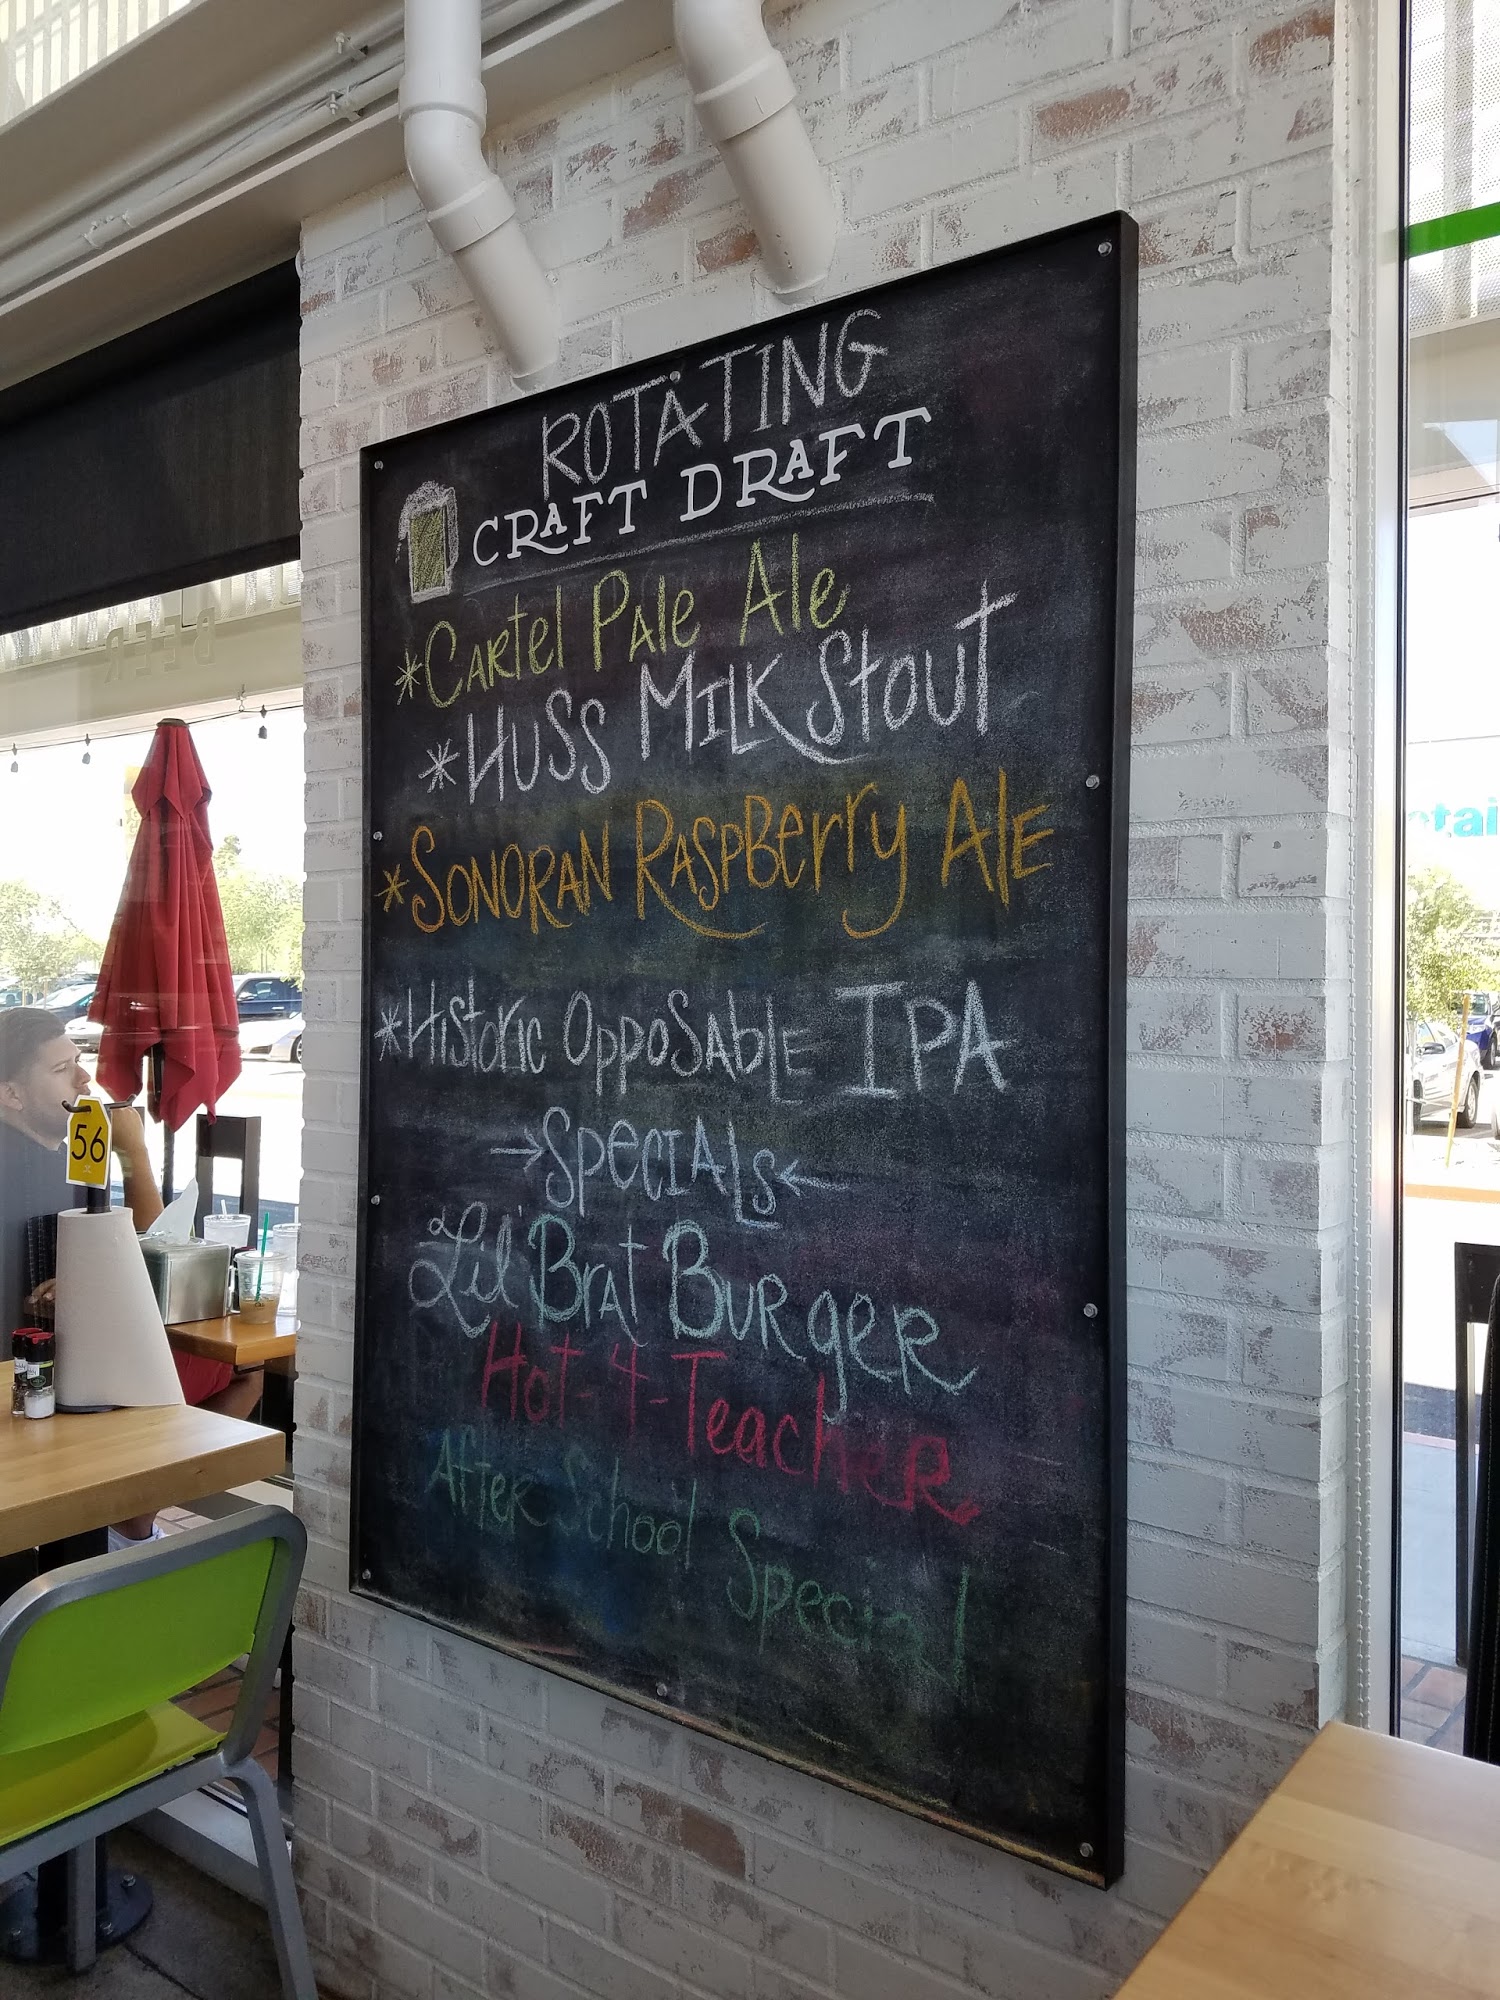 ROTATING
CRAFT DRAFT
*Cartel Pale Ale
*Huss Milk Stout
*Sonoran Raspberry Ale
*Historic Opposable IPA
→Specials←
Lil' Brat Burger
Hot-4-Teacher
After School Special
BEER
56